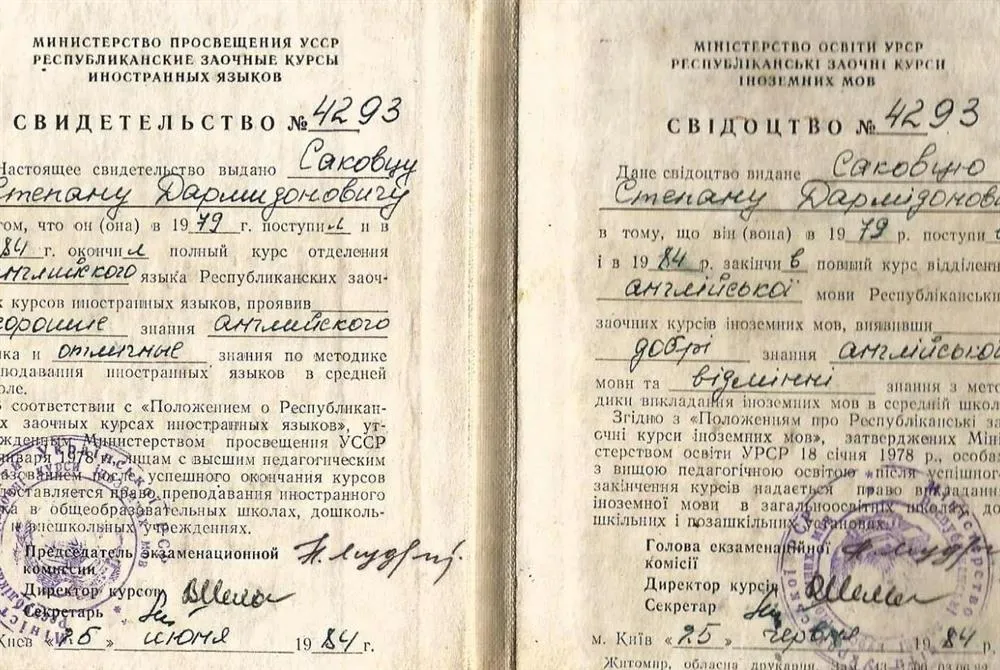 МИНИСТЕРСТВО ПРОСВЕЩЕНИЯ УССР
РЕСПУБЛИКАНСКИЕ ЗАОЧНЫЕ КУРСЫ
ИНОСТРАННЫХ ЯЗЫКОВ
СВИДЕТЕЛЬСТВО № 4293
Настоящее свидетельство выдано Саковцу
Степану Дармидоновичу
том, что он (она) в 1979 г. поступил и в
84 г. окончил полный курс отделения
английского языка Республиканских заоч-
х курсов иностранных языков, проявив
хорошие знания английского
ка и отличные знания по методике
подавания иностранных языков в средней
оле.
В соответствии с «Положением о Республикан-
х заочных курсах иностранных языков», ут-
жденным Министерством просвещения УССР
января 1978 г., лицам с высшим педагогическим
разованием после успешного окончания курсов
доставляется право преподавания иностранного
ка в общеобразовательных школах, дошколь-
и внешкольных учреждениях.
Председатель экзаменационной
комиссии
Директор курсов
Секретарь
Киев «25» июня 1984 г.
МІНІСТЕРСТВО ОСВІТИ УРСР
РЕСПУБЛІКАНСЬКІ ЗАОЧНІ КУРСИ
ІНОЗЕМНИХ МОВ
СВІДОЦТВО № 4293
Дане свідоцтво видане Саковцю
Степану Дармідонови
в тому, що він (вона) в 1979 р. поступив
і в 1984 р. закінчив повний курс відділен
англійської мови Республіканськи
заочних курсів іноземних мов, виявивши
добрі знання англійської
мови та відмінні знання з мето
дики викладання іноземних мов в середній школ
Згідно з «Положенням про Республіканські за
очні курси іноземних мов», затверджених Міні
стерством освіти УРСР 18 січня 1978 р., особа
з вищою педагогічною освітою після успішног
закінчення курсів надається право викладанн
іноземної мови в загальноосвітніх школах, до
шкільних і позашкільних установах.
Голова екзаменаційної
комісії
Директор курсів
Секретар
м. Київ «25» червня 1984 р.
Житомир, обласна друкарн